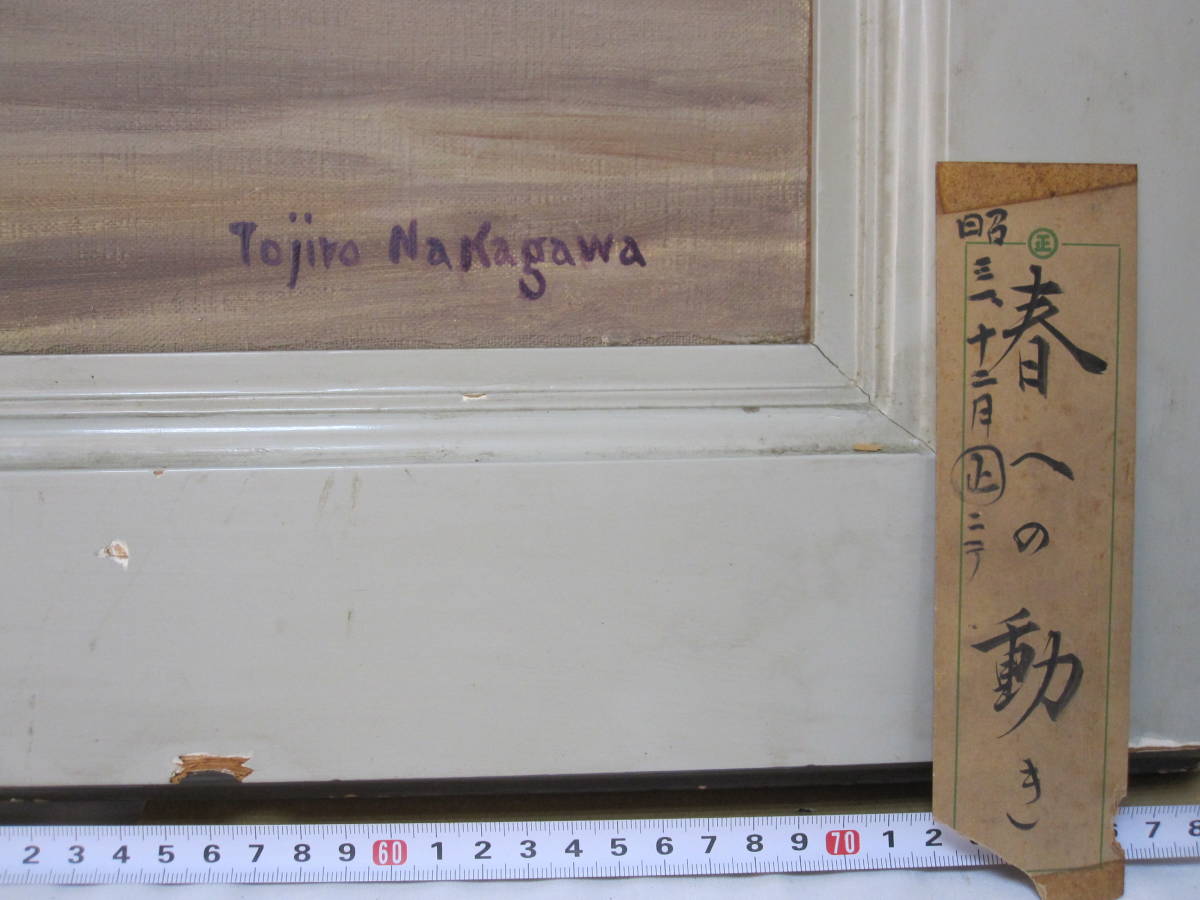 Tojiro Nakagawa
㊣
春への動き
昭三八、十二月 ㊣ 二丁
2 3 4 5 6 7 8 9 60 1 2 3 4 5 6 7 8 9 70 1 2 7 8